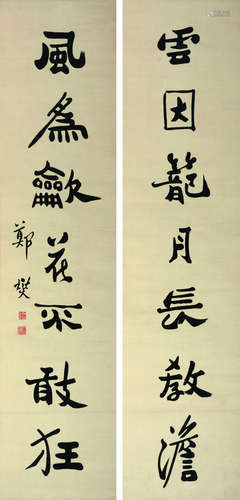 雲因籠月長教澹
風爲龡花不敢狂
鄭燮